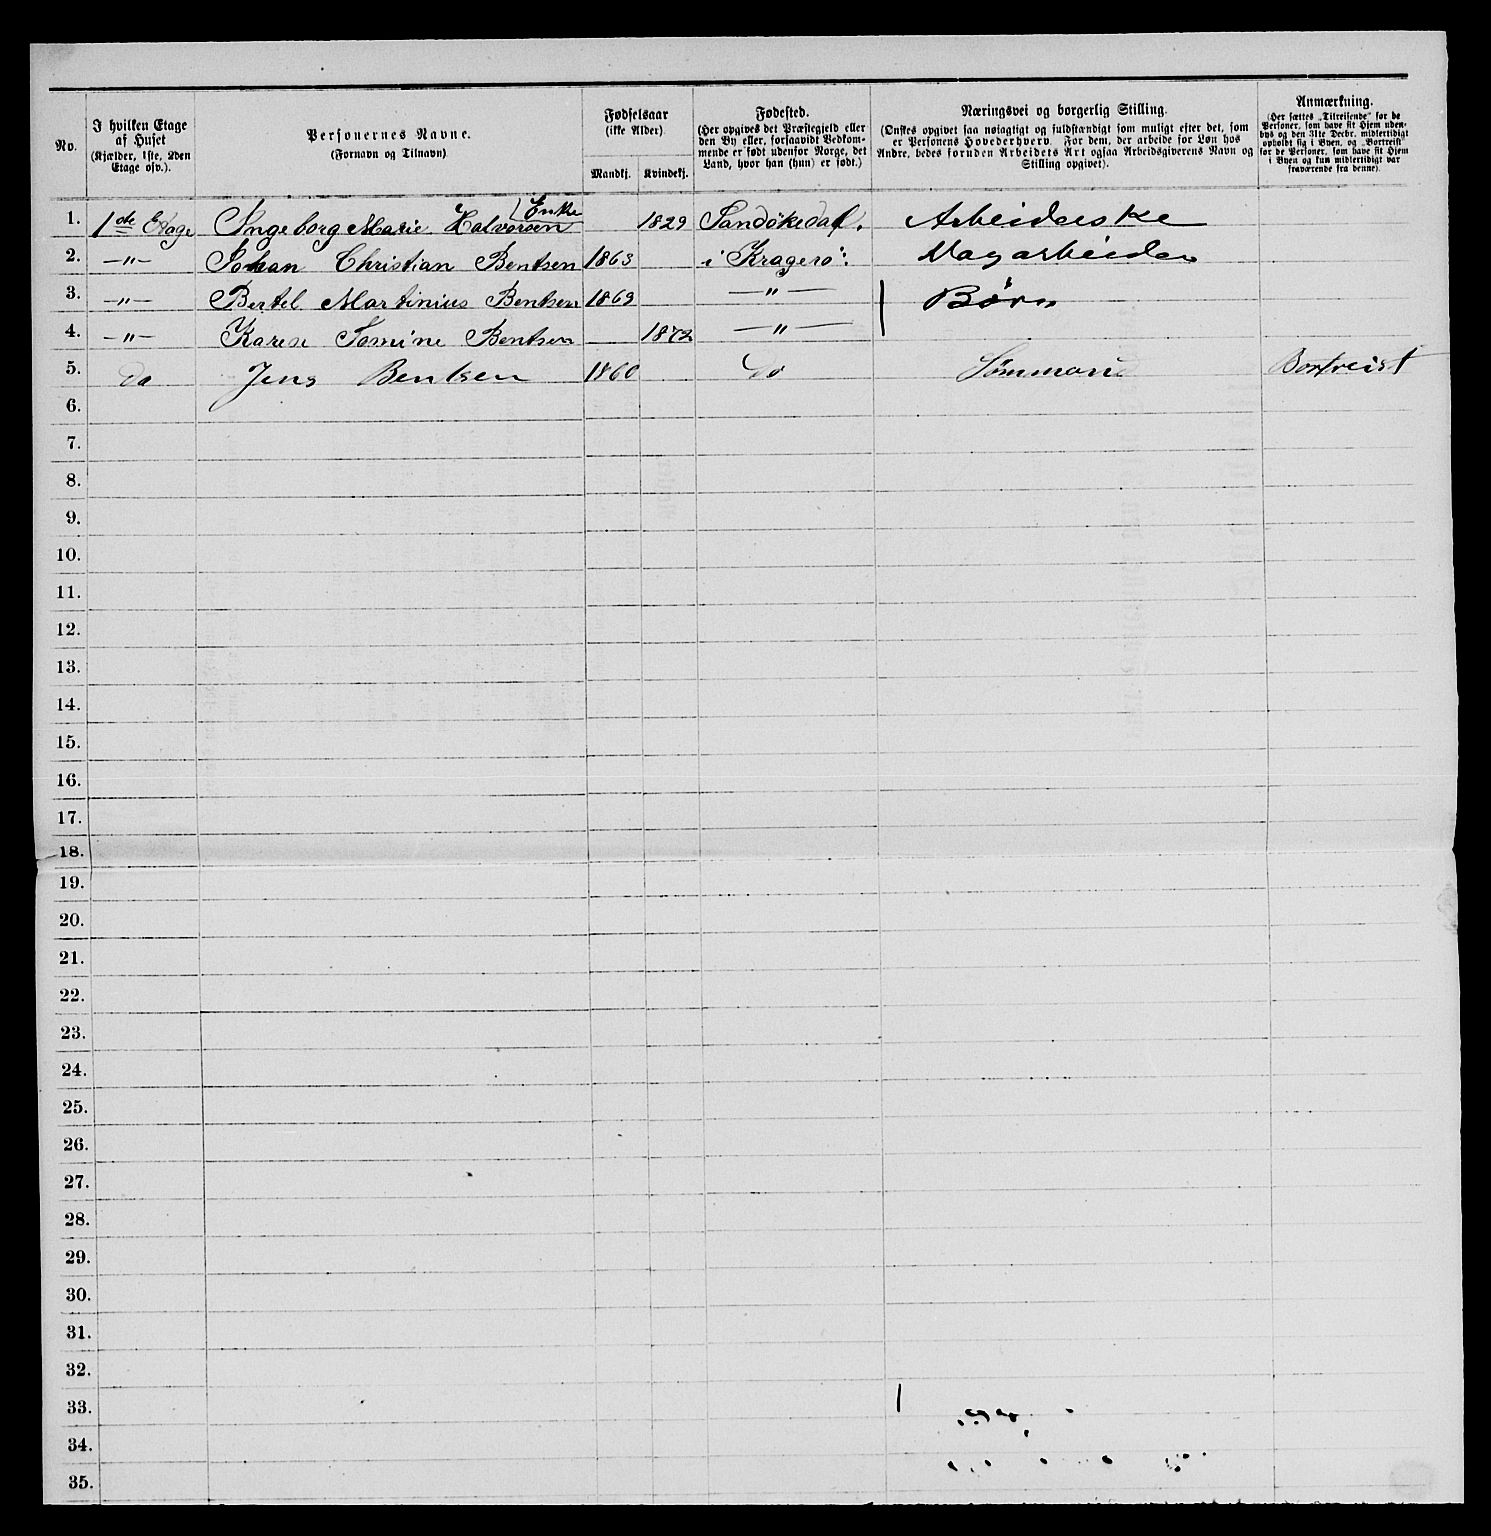 No.
I hvilken Etage
af Huset
(Kjælder, 1ste, 2den
Etage osv.).
Personernes Navne.
(Fornavn og Tilnavn)
Fødselsaar
(ikke Alder).
Mandkj. Kvindekj.
Fødested.
(Her opgives det Præstegjeld eller
den By eller, forsaavidt Vedkom-
mende er født udenfor Norge, det
Land, hvor han (hun) er født.)
Næringsvei og borgerlig Stilling.
(Ønskes opgivet saa nøiagtigt og fuldstændigt som muligt efter det, som
er Personens Hovederhverv. For dem, der arbeide for Løn hos
Andre, bedes foruden Arbeidets Art ogsaa Arbeidsgiverens Navn og
Stilling opgivet).
Anmærkning.
(Her sættes „Tilreisende" for de
Personer, som have sit Hjem uden-
bys og den 31te Decbr. midlertidigt
opholdt sig i Byen, og „Bortreist"
for de Personer, som have sit Hjem
i Byen og kun midlertidigt var
fraværende fra denne).
1. 1ste Etage Ingeborg Marie Halvorsen Enke 1829 Sandökedal. Arbeiderske
2. —"— Johan Christian Bentsen 1863 i Kragerö: Magarbeider
3. —"— Bertel Martinius Bentsen 1869 —"— Børn
4. —"— Karese Tomine Bentsen 1872 —"—
5. do Jens Bentsen 1860 do Sømmand Bortreist
6.
7.
8.
9.
10.
11.
12.
13.
14.
15.
16.
17.
18.
19.
20.
21.
22.
23.
24.
25.
26.
27.
28.
29.
30.
31.
32.
33.
34.
35.